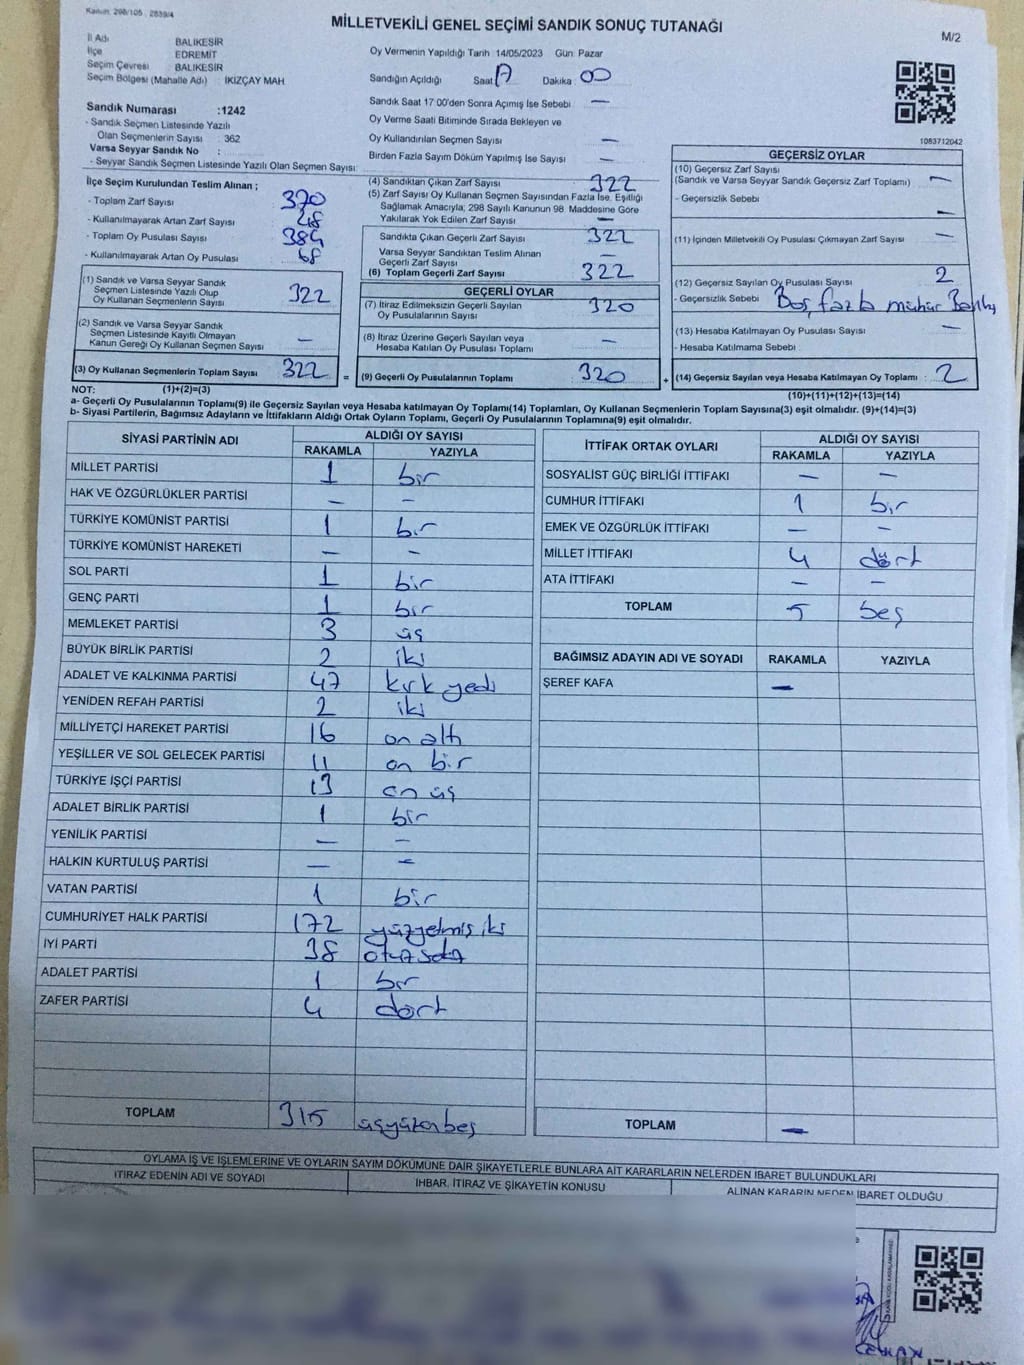 Kanun: 298/105 , 2839/4
MİLLETVEKİLİ GENEL SEÇİMİ SANDIK SONUÇ TUTANAĞI
M/2
İl Adı BALIKESİR
İlçe EDREMİT
Seçim Çevresi BALIKESİR
Seçim Bölgesi (Mahalle Adı) : İKİZÇAY MAH
Sandık Numarası :1242
- Sandık Seçmen Listesinde Yazılı
Olan Seçmenlerin Sayısı : 362
Varsa Seyyar Sandık No :
- Seyyar Sandık Seçmen Listesinde Yazılı Olan Seçmen Sayısı:
Oy Vermenin Yapıldığı Tarih :14/05/2023 Gün: Pazar
Sandığın Açıldığı Saat 17 Dakika 00
Sandık Saat 17 00'den Sonra Açılmış İse Sebebi —
Oy Verme Saati Bitiminde Sırada Bekleyen ve
Oy Kullandırılan Seçmen Sayısı —
Birden Fazla Sayım Döküm Yapılmış İse Sayısı —
1083712042
İlçe Seçim Kurulundan Teslim Alınan ;
- Toplam Zarf Sayısı 370
- Kullanılmayarak Artan Zarf Sayısı 48
- Toplam Oy Pusulası Sayısı
- Kullanılmayarak Artan Oy Pusulası 68
(1) Sandık ve Varsa Seyyar Sandık
Seçmen Listesinde Yazılı Olup
Oy Kullanan Seçmenlerin Sayısı 322
(2) Sandık ve Varsa Seyyar Sandık
Seçmen Listesinde Kayıtlı Olmayan
Kanun Gereği Oy Kullanan Seçmen Sayısı —
(3) Oy Kullanan Seçmenlerin Toplam Sayısı 322 =
(4) Sandıktan Çıkan Zarf Sayısı 322
(5) Zarf Sayısı Oy Kullanan Seçmen Sayısından Fazla İse, Eşitliği
Sağlamak Amacıyla; 298 Sayılı Kanunun 98. Maddesine Göre
Yakılarak Yok Edilen Zarf Sayısı —
Sandıkta Çıkan Geçerli Zarf Sayısı 322
Varsa Seyyar Sandıktan Teslim Alınan
Geçerli Zarf Sayısı —
(6) Toplam Geçerli Zarf Sayısı 322
GEÇERLİ OYLAR
(7) İtiraz Edilmeksizin Geçerli Sayılan
Oy Pusulalarının Sayısı 320
(8) İtiraz Üzerine Geçerli Sayılan veya
Hesaba Katılan Oy Pusulası Toplamı —
(9) Geçerli Oy Pusulalarının Toplamı 320 +
GEÇERSİZ OYLAR
(10) Geçersiz Zarf Sayısı
(Sandık ve Varsa Seyyar Sandık Geçersiz Zarf Toplamı) —
- Geçersizlik Sebebi —
(11) İçinden Milletvekili Oy Pusulası Çıkmayan Zarf Sayısı —
(12) Geçersiz Sayılan Oy Pusulası Sayısı 2
- Geçersizlik Sebebi Boş, fazla mühür
(13) Hesaba Katılmayan Oy Pusulası Sayısı —
- Hesaba Katılmama Sebebi
(14) Geçersiz Sayılan veya Hesaba Katılmayan Oy Toplamı 2
NOT: (1)+(2)=(3) (10)+(11)+(12)+(13)=(14)
a- Geçerli Oy Pusulalarının Toplamı(9) ile Geçersiz Sayılan veya Hesaba katılmayan Oy Toplamı(14) Toplamları, Oy Kullanan Seçmenlerin Toplam Sayısına(3) eşit olmalıdır. (9)+(14)=(3)
b- Siyasi Partilerin, Bağımsız Adayların ve İttifakların Aldığı Ortak Oyların Toplamı, Geçerli Oy Pusulalarının Toplamına(9) eşit olmalıdır.
SİYASİ PARTİNİN ADI ALDIĞI OY SAYISI
RAKAMLA YAZIYLA
MİLLET PARTİSİ 1 bir
HAK VE ÖZGÜRLÜKLER PARTİSİ — —
TÜRKİYE KOMÜNİST PARTİSİ 1 bir
TÜRKİYE KOMÜNİST HAREKETİ — —
SOL PARTİ 1 bir
GENÇ PARTİ 1 bir
MEMLEKET PARTİSİ 3 üç
BÜYÜK BİRLİK PARTİSİ 2 iki
ADALET VE KALKINMA PARTİSİ 47 kırk yedi
YENİDEN REFAH PARTİSİ 2 iki
MİLLİYETÇİ HAREKET PARTİSİ 16 on altı
YEŞİLLER VE SOL GELECEK PARTİSİ 11 on bir
TÜRKİYE İŞÇİ PARTİSİ 13 on üç
ADALET BİRLİK PARTİSİ 1 bir
YENİLİK PARTİSİ — —
HALKIN KURTULUŞ PARTİSİ — —
VATAN PARTİSİ 1 bir
CUMHURİYET HALK PARTİSİ 172 yüzyetmiş iki
İYİ PARTİ 38 otuz sekiz
ADALET PARTİSİ 1 bir
ZAFER PARTİSİ 4 dört
TOPLAM 315 üçyüzonbeş
İTTİFAK ORTAK OYLARI ALDIĞI OY SAYISI
RAKAMLA YAZIYLA
SOSYALİST GÜÇ BİRLİĞİ İTTİFAKI — —
CUMHUR İTTİFAKI 1 bir
EMEK VE ÖZGÜRLÜK İTTİFAKI — —
MİLLET İTTİFAKI 4 dört
ATA İTTİFAKI — —
TOPLAM 5 beş
BAĞIMSIZ ADAYIN ADI VE SOYADI RAKAMLA YAZIYLA
ŞEREF KAFA —
TOPLAM —
OYLAMA İŞ VE İŞLEMLERİNE VE OYLARIN SAYIM DÖKÜMÜNE DAİR ŞİKAYETLERLE BUNLARA AİT KARARLARIN NELERDEN İBARET BULUNDUKLARI
İTİRAZ EDENİN ADI VE SOYADI İHBAR, İTİRAZ VE ŞİKAYETİN KONUSU ALINAN KARARIN NEDEN İBARET OLDUĞU